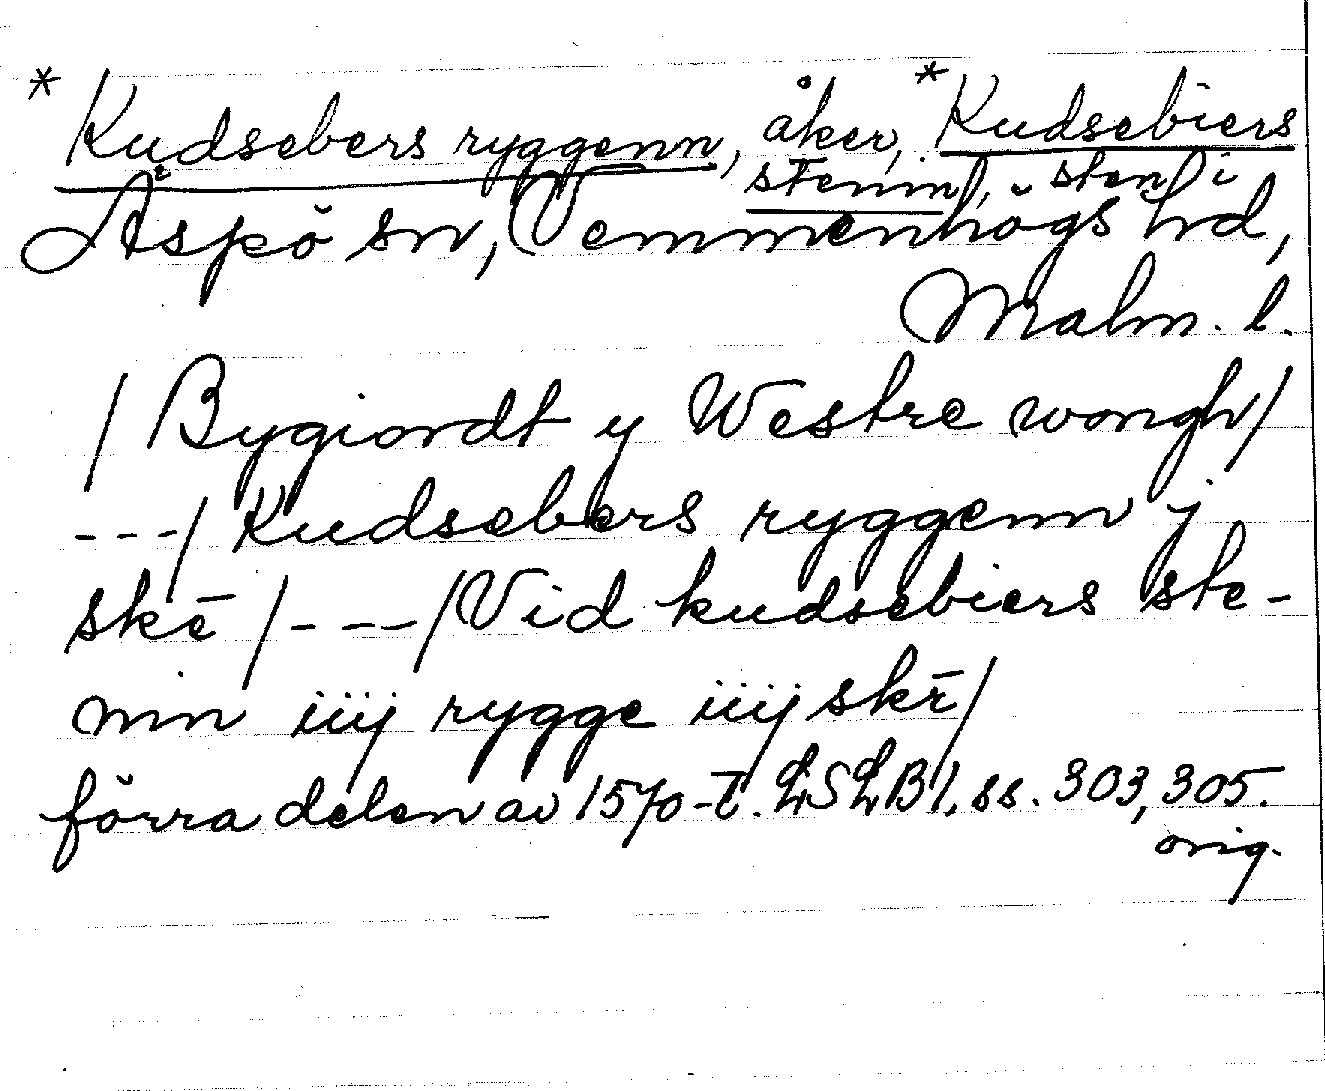 * Kudsebers ryggenn, åker, * Kudsebiers
stenn, sten i
Äspö sn, Vemmenhögs hd,
Malm. l.
/ Bygiordt y Westre wongh/
---/ Kudsebers ryggenn j
skē /---/ Vid kudsebiers ste-
nin iiij rygge iiij skē/
förra delen av 1570-t. LSLB I, ss. 303, 305.
orig.